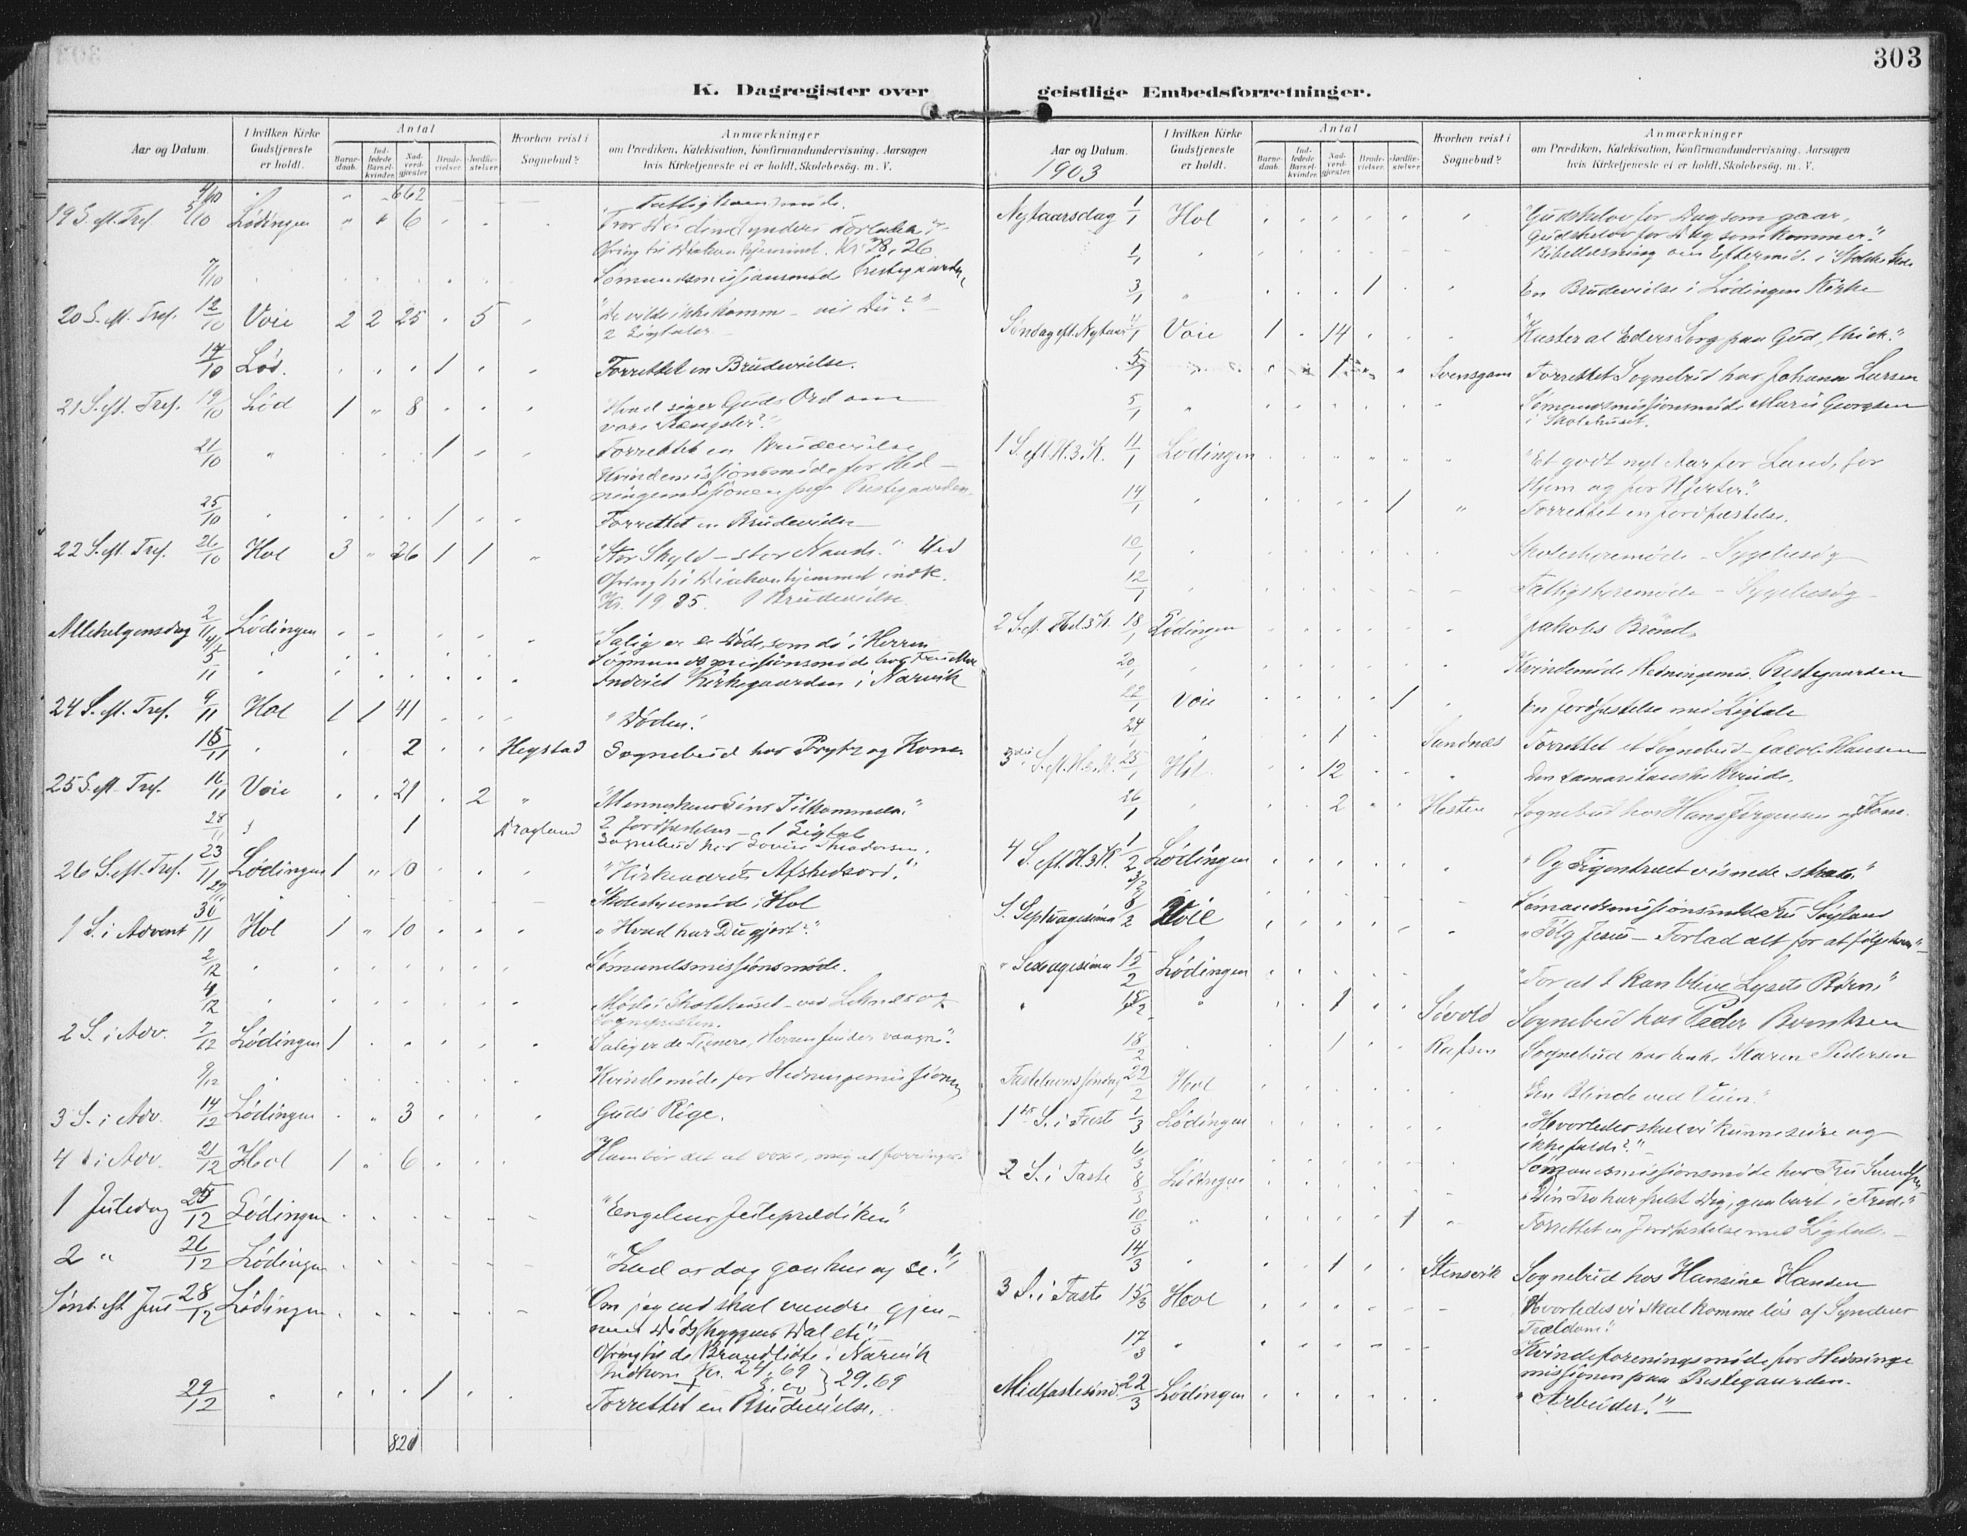 303
K. Dagregister over
Aar og Datum.
I hvilken Kirke Gudstjeneste er holdt.
Antal
Barnedaab.
Indledede Barselkvinder.
Nadverdgjester.
Brudevielser.
Jordfæstelser.
Hvorhen reist i Sognebud?
Anmærkninger
om Prædiken, Katekisation, Konfirmandundervisning. Aarsagen
hvis Kirketjeneste ei er holdt. Skolebesøg. m. V.
4/10 " " 662 Fattigkommisionsmøde.
19 S. eft. Tref. 5/10 Lødingen " " 6 "Tror Du dine Synders Forladelse?"
Ofring til Diakonhjemmet. Kr. 26
7/10 Sømandsmissionsmøde Prestegaarden
20 S. eft. Tref. 12/10 Voie 2 2 25 " 5 " "De vilde ikke komme – vil Du?"
2 Ligtaler
14/10 Lød. 1 Forrettet en Brudevielse.
21 S. eft. Tref. 19/10 Lød 1 " 8 "Hvad siger Guds Ord om
vore Fængsler?"
21/10 " 1 Forrettet en Brudevielse
Kvindemissionsmøde for Hed-
ningemissionen paa Prestegaarden.
25/10 1 Forrettet en Brudevielse
22 S. eft. Tref. 26/10 Hol 3 " 26 1 1 " "Stor Skyld – stor Naade." Ved
Ofring til Diakonhjemmet indk.
Kr. 19.35. 1 Brudevielse.
Allehelgensdag 2/11 Lødingen Salig er de Døde, som dø i Herren
4/11 Sømandsmissionsmøde hos Fru
5/11 Indviet Kirkegaarden i Narvik
24 S. eft. Tref. 9/11 Hol 1 1 41 "Døden."
15/11 " 2 Hegstad Sognebud hos Prytz og Kone
25 S. eft. Tref. 16/11 Voie 21 2 " "Menneskens Søns Tilkommelse."
2 Jordfæstelser – 1 Ligtale
28/11 1 Dragland Sognebud hos
26 S. eft. Tref. 23/11 Lødingen 1 " 10 "Kirkeaarets Afskedsord."
29/11 Skolestyremøde i Hol
1 S. i Advent 30/11 Hol 1 " 10 "Hvad har Du gjort?"
2/12 Sømandsmissionsmøde.
4/12 Møde i Skolehuset – ved og
Sognepresten.
2 S. i Adv. 7/12 Lødingen 1 Salig er de Tjenere, Herren finder vaagne."
9/12 Kvindemøde for Hedningemissionen
3 S. i Adv. 14/12 Lødingen " 3 Guds Rige.
4 S i Adv. 21/12 Hol 1 " 6 Ham bør det at voxe, mig at forringes
1 Juledag 25/12 Lødingen "Englenes Juleprædiken"
2 " 26/12 Lødingen "Lad os dog gaa hen og se."
Sønd. eft. Jul 28/12 Lødingen "Om jeg end skal vandre gjen-
nem Dødsskyggens Dal etc."
Ofring til de Brandlidte i Narvik
Indkom Kr. 24,69 + 5.00 } 29.69
29/12 " 1 Forrettet en Brudevielse.
820
geistlige Embedsforretninger.
Aar og Datum.
1903
I hvilken Kirke Gudstjeneste er holdt.
Antal
Barnedaab.
Indledede Barselkvinder.
Nadverdgjester.
Brudevielser.
Jordfæstelser.
Hvorhen reist i Sognebud?
Anmærkninger
om Prædiken, Katekisation, Konfirmandundervisning. Aarsagen
hvis Kirketjeneste ei er holdt. Skolebesøg. m. V.
Nytaarsdag 1/1 Hol "Gudskelov for Dag som gaar,
Gudskelov for Dag som kommer."
1/1 Bibellæsning om Eftermid. i
3/1 " 1 En Brudevielse i Lødingen Kirke
Søndag eft. Nytaar 4/1 Voie 1 " 14 "Kaster al Eders Sorg paa Gud,
5/1 1 Svensgam Forrettet Sognebud hos Johanna Larsen
5/1 " Sømandsmissionsmøde Marie Georgsen
i Skolehuset.
1 S. eft. H. 3. K. 11/1 Lødingen "Et godt nyt Aar for Land, for
Hjem og for Hjerter."
14/1 " 1 " Forrettet en Jordfæstelse.
10/1 Skolestyremøde – Sygebesøg
12/1 Fattigstyremøde – Sygebesøg –
2 S. eft. Hel. 3 K. 18/1 Lødingen Jakobs Brønd.
20/1 " Kvindemøde Hedningemis. Prestegaarden
22/1 Voie 1 En Jordfæstelse med Ligtale
24/1 " 1 Sandnæs Forrettet et Sognebud – Jacob Hansen
3die S. eft. H. 3. K. 25/1 Hol 12 " Den samaritanske Kvinde.
26/1 " 2 Hesten Sognebud hos Hans Jørgensen og Kone.
4 S. eft. H. 3. K. 1/2 Lødingen "Og Figentræet visnede strax."
3/2 Sømandsmissionsmøde Fru
S. Septuagesima 8/2 Voie "Følg Jesus – Forlad alt for at følge ham"
" Sexagesima 15/2 Lødingen "For at I kan blive Lysets Børn"
" 15/2 " 1 Løvold Sognebud hos Peder Berntsen
18/2 1 Rafsen Sognebud hos Enke Karen Pedersen
Fastelavnssøndag 22/2 Hol "Den Blinde ved Veien."
1ste S. i Faste 1/3 Lødingen "Hvorledes skal vi kunne seire og
ikke falde?"
6/3 Sømandsmissionsmøde hos Fru
2 S. i Faste 8/3 Lødingen "Din Tro har frelst Dig, gaa bort i Fred."
10/3 " 1 Forrettet en Jordfæstelse med Ligtale –
14/3 " 1 Stensvik Sognebud hos Hansine Hansen
3 S. i Faste 15/3 Hol Hvorledes vi skal komme løs af Syndens
Trældom."
17/3 " Kvindeforeningsmøde for Hedninge
missionen paa Prestegaarden.
Midfastesønd. 22/3 Lødingen "Arbeider!"